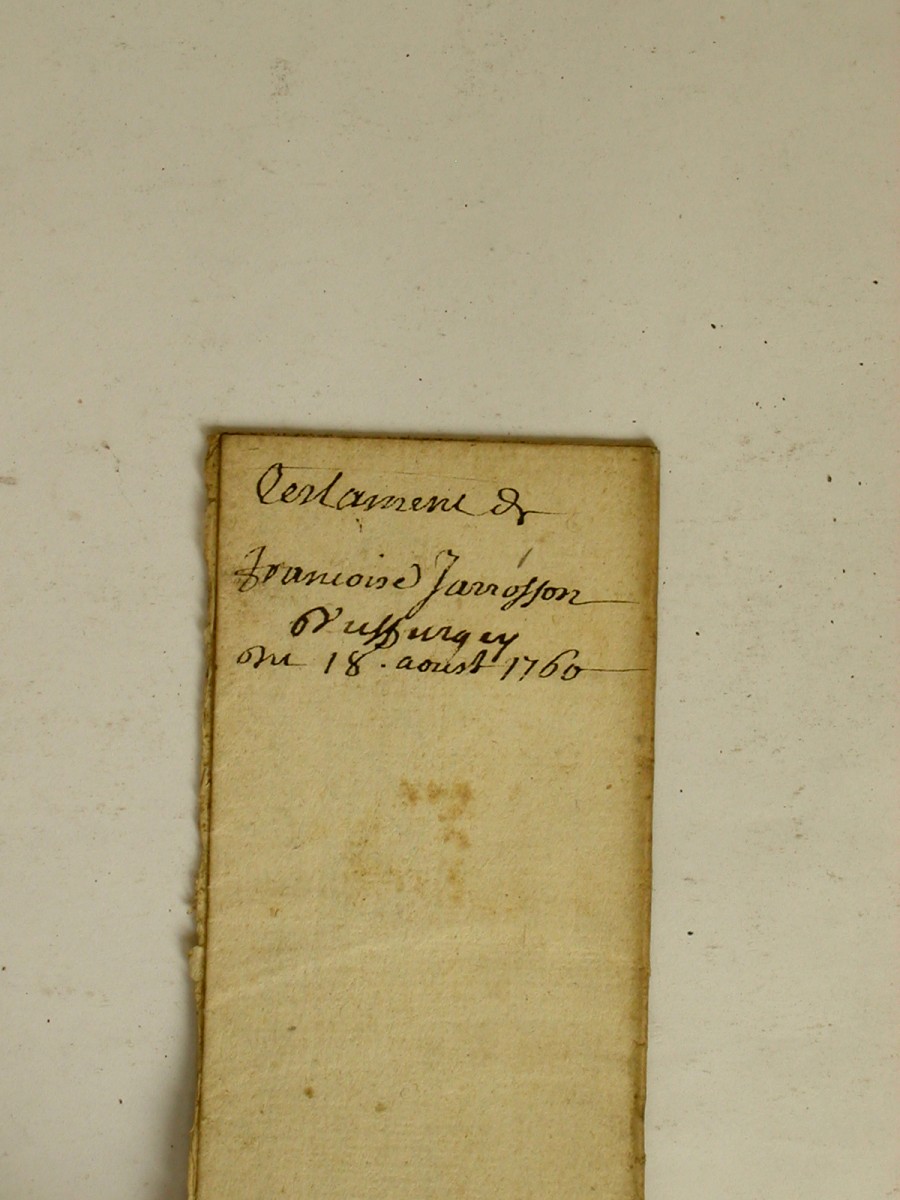 Testament de
francoise Jarrosson
Dussurgey
Du 18. aoust 1760